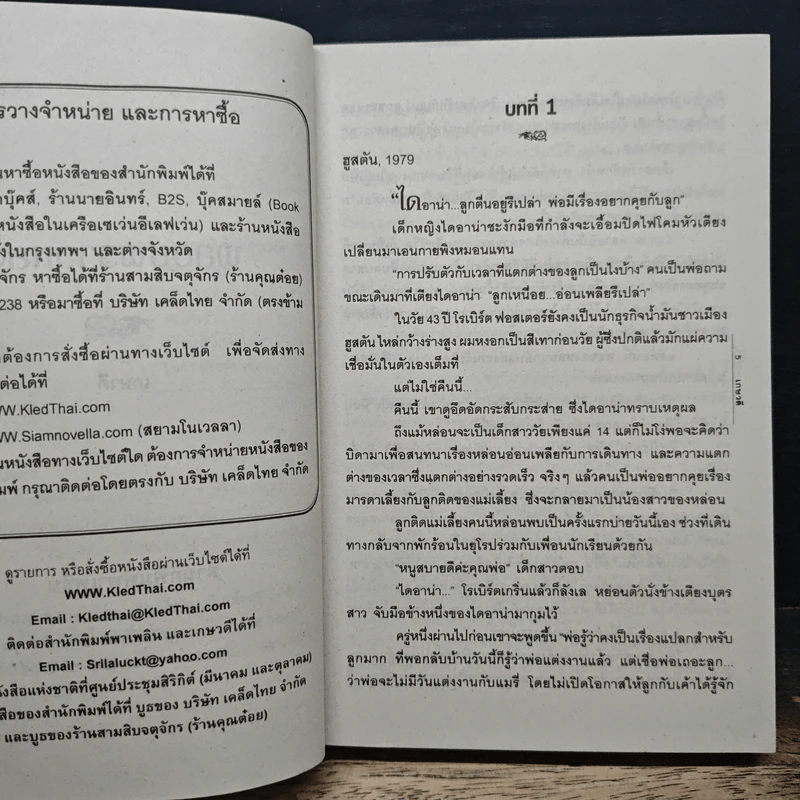 รวางจำหน่าย และการหาซื้อ
หาซื้อหนังสือของสำนักพิมพ์ได้ที่
บุ๊คส์, ร้านนายอินทร์, B2S, บุ๊คสมายล์ (Book
หนังสือในเครือเซเว่นอีเลฟเว่น) และร้านหนังสือ
ในกรุงเทพฯ และต่างจังหวัด
จักร หาซื้อได้ที่ร้านสามสิบจตุจักร (ร้านคุณต๋อย)
238 หรือมาซื้อที่ บริษัท เคล็ดไทย จำกัด (ตรงข้าม
ต้องการสั่งซื้อผ่านทางเว็บไซต์ เพื่อจัดส่งทาง
ต่อได้ที่
WW.KledThai.com
WW.Siamnovella.com (สยามโนเวลลา)
นหนังสือทางเว็บไซต์ใด ต้องการจำหน่ายหนังสือของ
พิมพ์ กรุณาติดต่อโดยตรงกับ บริษัท เคล็ดไทย จำกัด
ดูรายการ หรือสั่งซื้อหนังสือผ่านเว็บไซต์ได้ที่
www.KledThai.com
Email : Kledthai@KledThai.com
ติดต่อสำนักพิมพ์พาเพลิน และเกษวดีได้ที่
Email : Srilaluckt@yahoo.com
หนังสือแห่งชาติที่ศูนย์ประชุมสิริกิติ์ (มีนาคม และตุลาคม)
สือของสำนักพิมพ์ได้ที่ บูธของ บริษัท เคล็ดไทย จำกัด
และบูธของร้านสามสิบจตุจักร (ร้านคุณต๋อย)
บทที่ 1
ฮูสตัน, 1979
"ไดอาน่า...ลูกตื่นอยู่รึเปล่า พ่อมีเรื่องอยากคุยกับลูก"
เด็กหญิงไดอาน่าชะงักมือที่กำลังจะเอื้อมปิดไฟโคมหัวเตียง
เปลี่ยนมาเอนกายพิงหมอนแทน
"การปรับตัวกับเวลาที่แตกต่างของลูกเป็นไงบ้าง" คนเป็นพ่อถาม
ขณะเดินมาที่เตียงไดอาน่า "ลูกเหนื่อย...อ่อนเพลียรึเปล่า"
ในวัย 43 ปี โรเบิร์ต ฟอสเตอร์ยังคงเป็นนักธุรกิจน้ำมันชาวเมือง
ฮูสตัน ไหล่กว้างร่างสูง ผมหงอกเป็นสีเทาก่อนวัย ผู้ซึ่งปกติแล้วมักแผ่ความ
เชื่อมั่นในตัวเองเต็มที่
แต่ไม่ใช่คืนนี้...
คืนนี้ เขาดูอึดอัดกระสับกระส่าย ซึ่งไดอาน่าทราบเหตุผล
ถึงแม้หล่อนจะเป็นเด็กสาววัยเพียงแค่ 14 แต่ก็ไม่โง่พอจะคิดว่า
บิดามาเพื่อสนทนาเรื่องหล่อนอ่อนเพลียกับการเดินทาง และความแตก
ต่างของเวลาซึ่งแตกต่างอย่างรวดเร็ว จริงๆ แล้วคนเป็นพ่ออยากคุยเรื่อง
มารดาเลี้ยงกับลูกติดของแม่เลี้ยง ซึ่งจะกลายมาเป็นน้องสาวของหล่อน
ลูกติดแม่เลี้ยงคนนี้หล่อนพบเป็นครั้งแรกบ่ายวันนี้เอง ช่วงที่เดิน
ทางกลับจากพักร้อนในยุโรปร่วมกับเพื่อนนักเรียนด้วยกัน
"หนูสบายดีค่ะคุณพ่อ" เด็กสาวตอบ
"ไดอาน่า..." โรเบิร์ตเกริ่นแล้วก็ลังเล หย่อนตัวนั่งข้างเตียงบุตร
สาว จับมือข้างหนึ่งของไดอาน่ามากุมไว้
ครู่หนึ่งผ่านไปก่อนเขาจะพูดขึ้น "พ่อรู้ว่าคงเป็นเรื่องแปลกสำหรับ
ลูกมาก ที่พอกลับบ้านวันนี้ก็รู้ว่าพ่อแต่งงานแล้ว แต่เชื่อพ่อเถอะลูก...
ว่าพ่อจะไม่มีวันแต่งงานกับแมรี่ โดยไม่เปิดโอกาสให้ลูกกับเค้าได้รู้จัก
5
เกษวดี